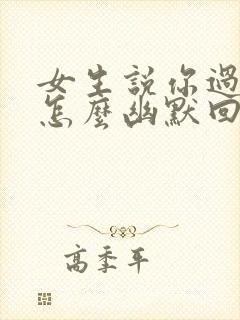 女生説你過
怎麼幽默回
高季平